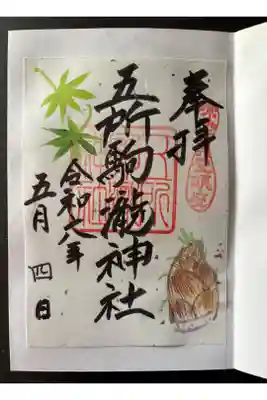 奉拝
五所駒瀧神社
令和八年
五月四日